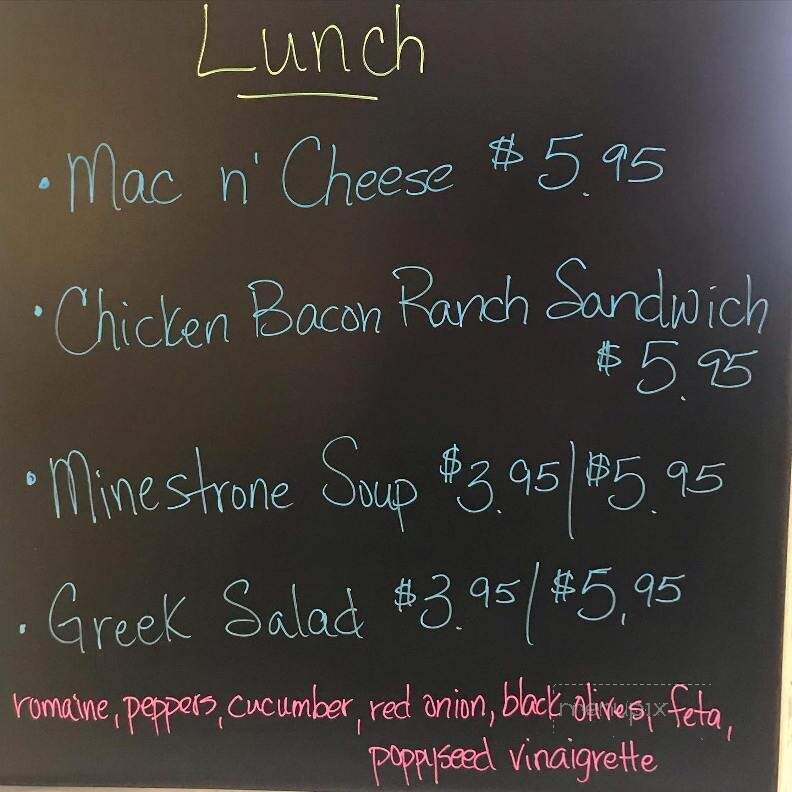 Lunch
• Mac n' Cheese $5.95
• Chicken Bacon Ranch Sandwich
$5.95
• Minestrone Soup $3.95/$5.95
• Greek Salad $3.95/$5.95
romaine, peppers, cucumber, red onion, black olives, feta,
poppyseed vinaigrette
menupix